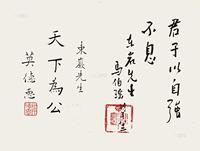 君子以自強
不息
東岩先生
馬伯瑤
東巖先生
天下為公
莫德惠